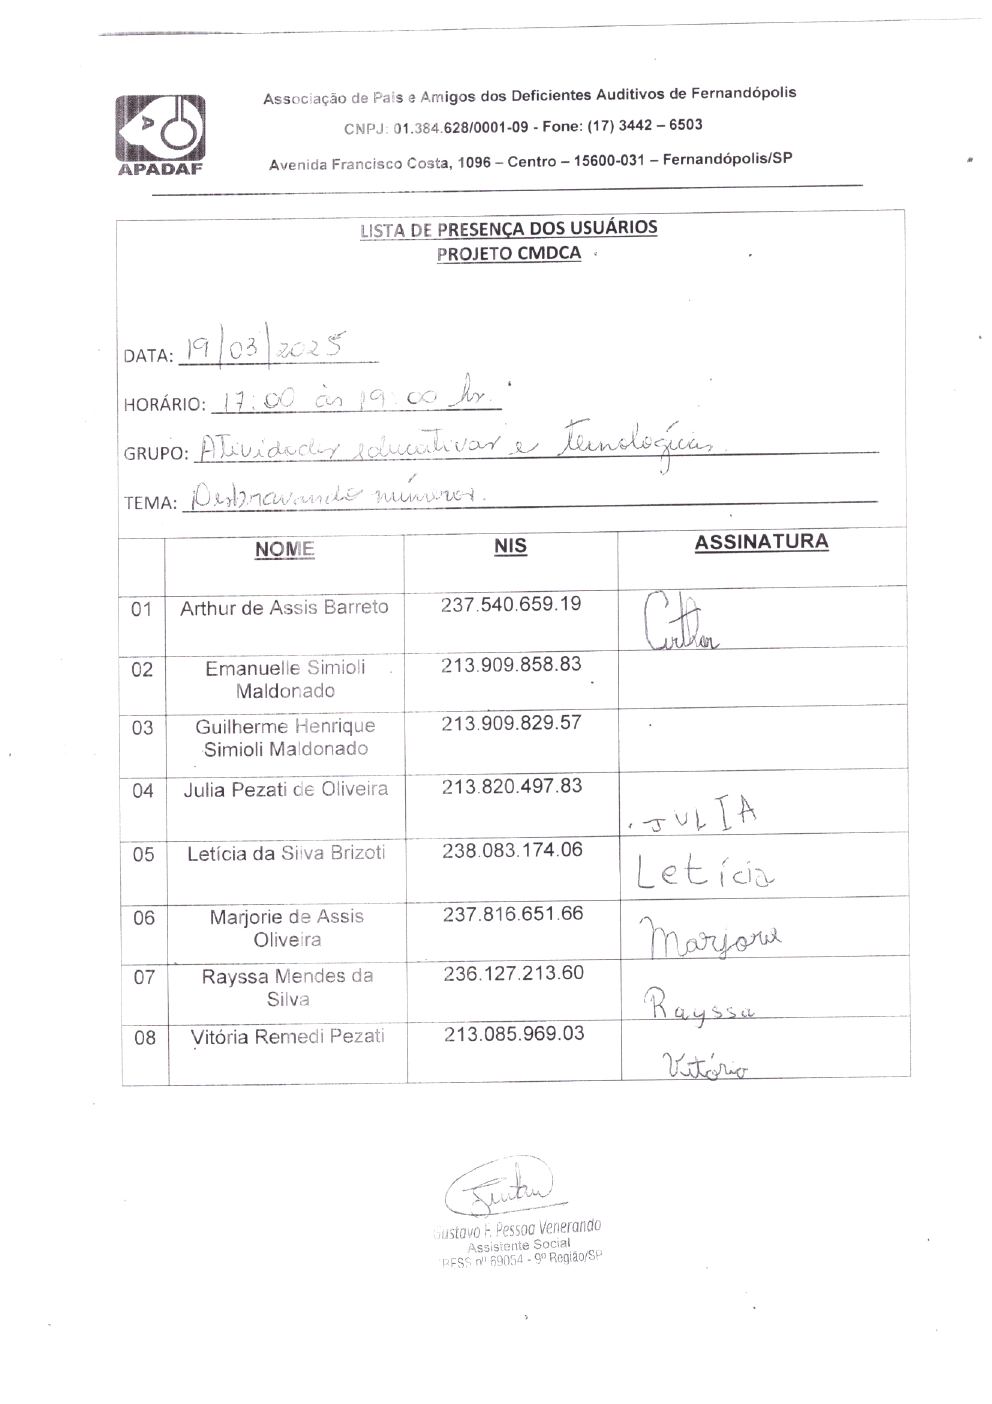 Associação de Pais e Amigos dos Deficientes Auditivos de Fernandópolis
CNPJ: 01.384.628/0001-09 - Fone: (17) 3442 – 6503
Avenida Francisco Costa, 1096 – Centro – 15600-031 – Fernandópolis/SP
APADAF
LISTA DE PRESENÇA DOS USUÁRIOS
PROJETO CMDCA
DATA: 19/03/2025
HORÁRIO: 17:00 às 19:00 hr.
GRUPO: Atividades educativas e tecnológicas.
TEMA: Desbravando números.
NOME NIS ASSINATURA
01 Arthur de Assis Barreto 237.540.659.19 Arthur
02 Emanuelle Simioli 213.909.858.83
Maldonado
03 Guilherme Henrique 213.909.829.57
Simioli Maldonado
04 Julia Pezati de Oliveira 213.820.497.83 JULIA
05 Letícia da Silva Brizoti 238.083.174.06 Letícia
06 Marjorie de Assis 237.816.651.66 Marjorie
Oliveira
07 Rayssa Mendes da 236.127.213.60 Rayssa
Silva
08 Vitória Remedi Pezati 213.085.969.03 Vitória
Gustavo F. Pessoa Venerando
Assistente Social
CRESS nº 69054 - 9º Região/SP